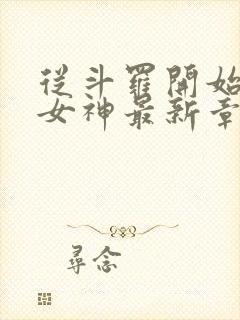 從斗羅開始
女神最新章
尋念